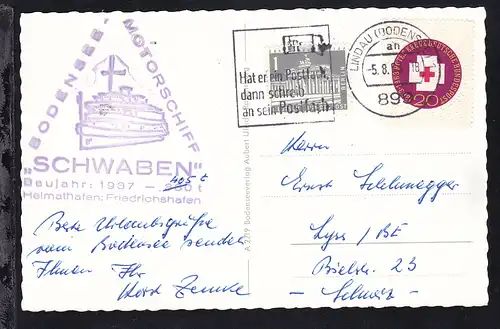 BODENSEE-MOTORSCHIFF
"SCHWABEN"
Baujahr: 1937 - 350 t
405 t
Heimathafen: Friedrichshafen
Beste Urlaubsgrüße
vom Bodensee sendet
Ihnen Ihr
Horst
A 2219 Bodenseeverlag
Hat er ein Postfach,
dann schreib
an sein Postfach
1
LINDAU (BODENSEE)
ah
-5.8.
18
899
DEUTSCHE BUNDESPOST
20
Herrn
Ernst
Lyss / BE
Bielstr. 23
- Schweiz -